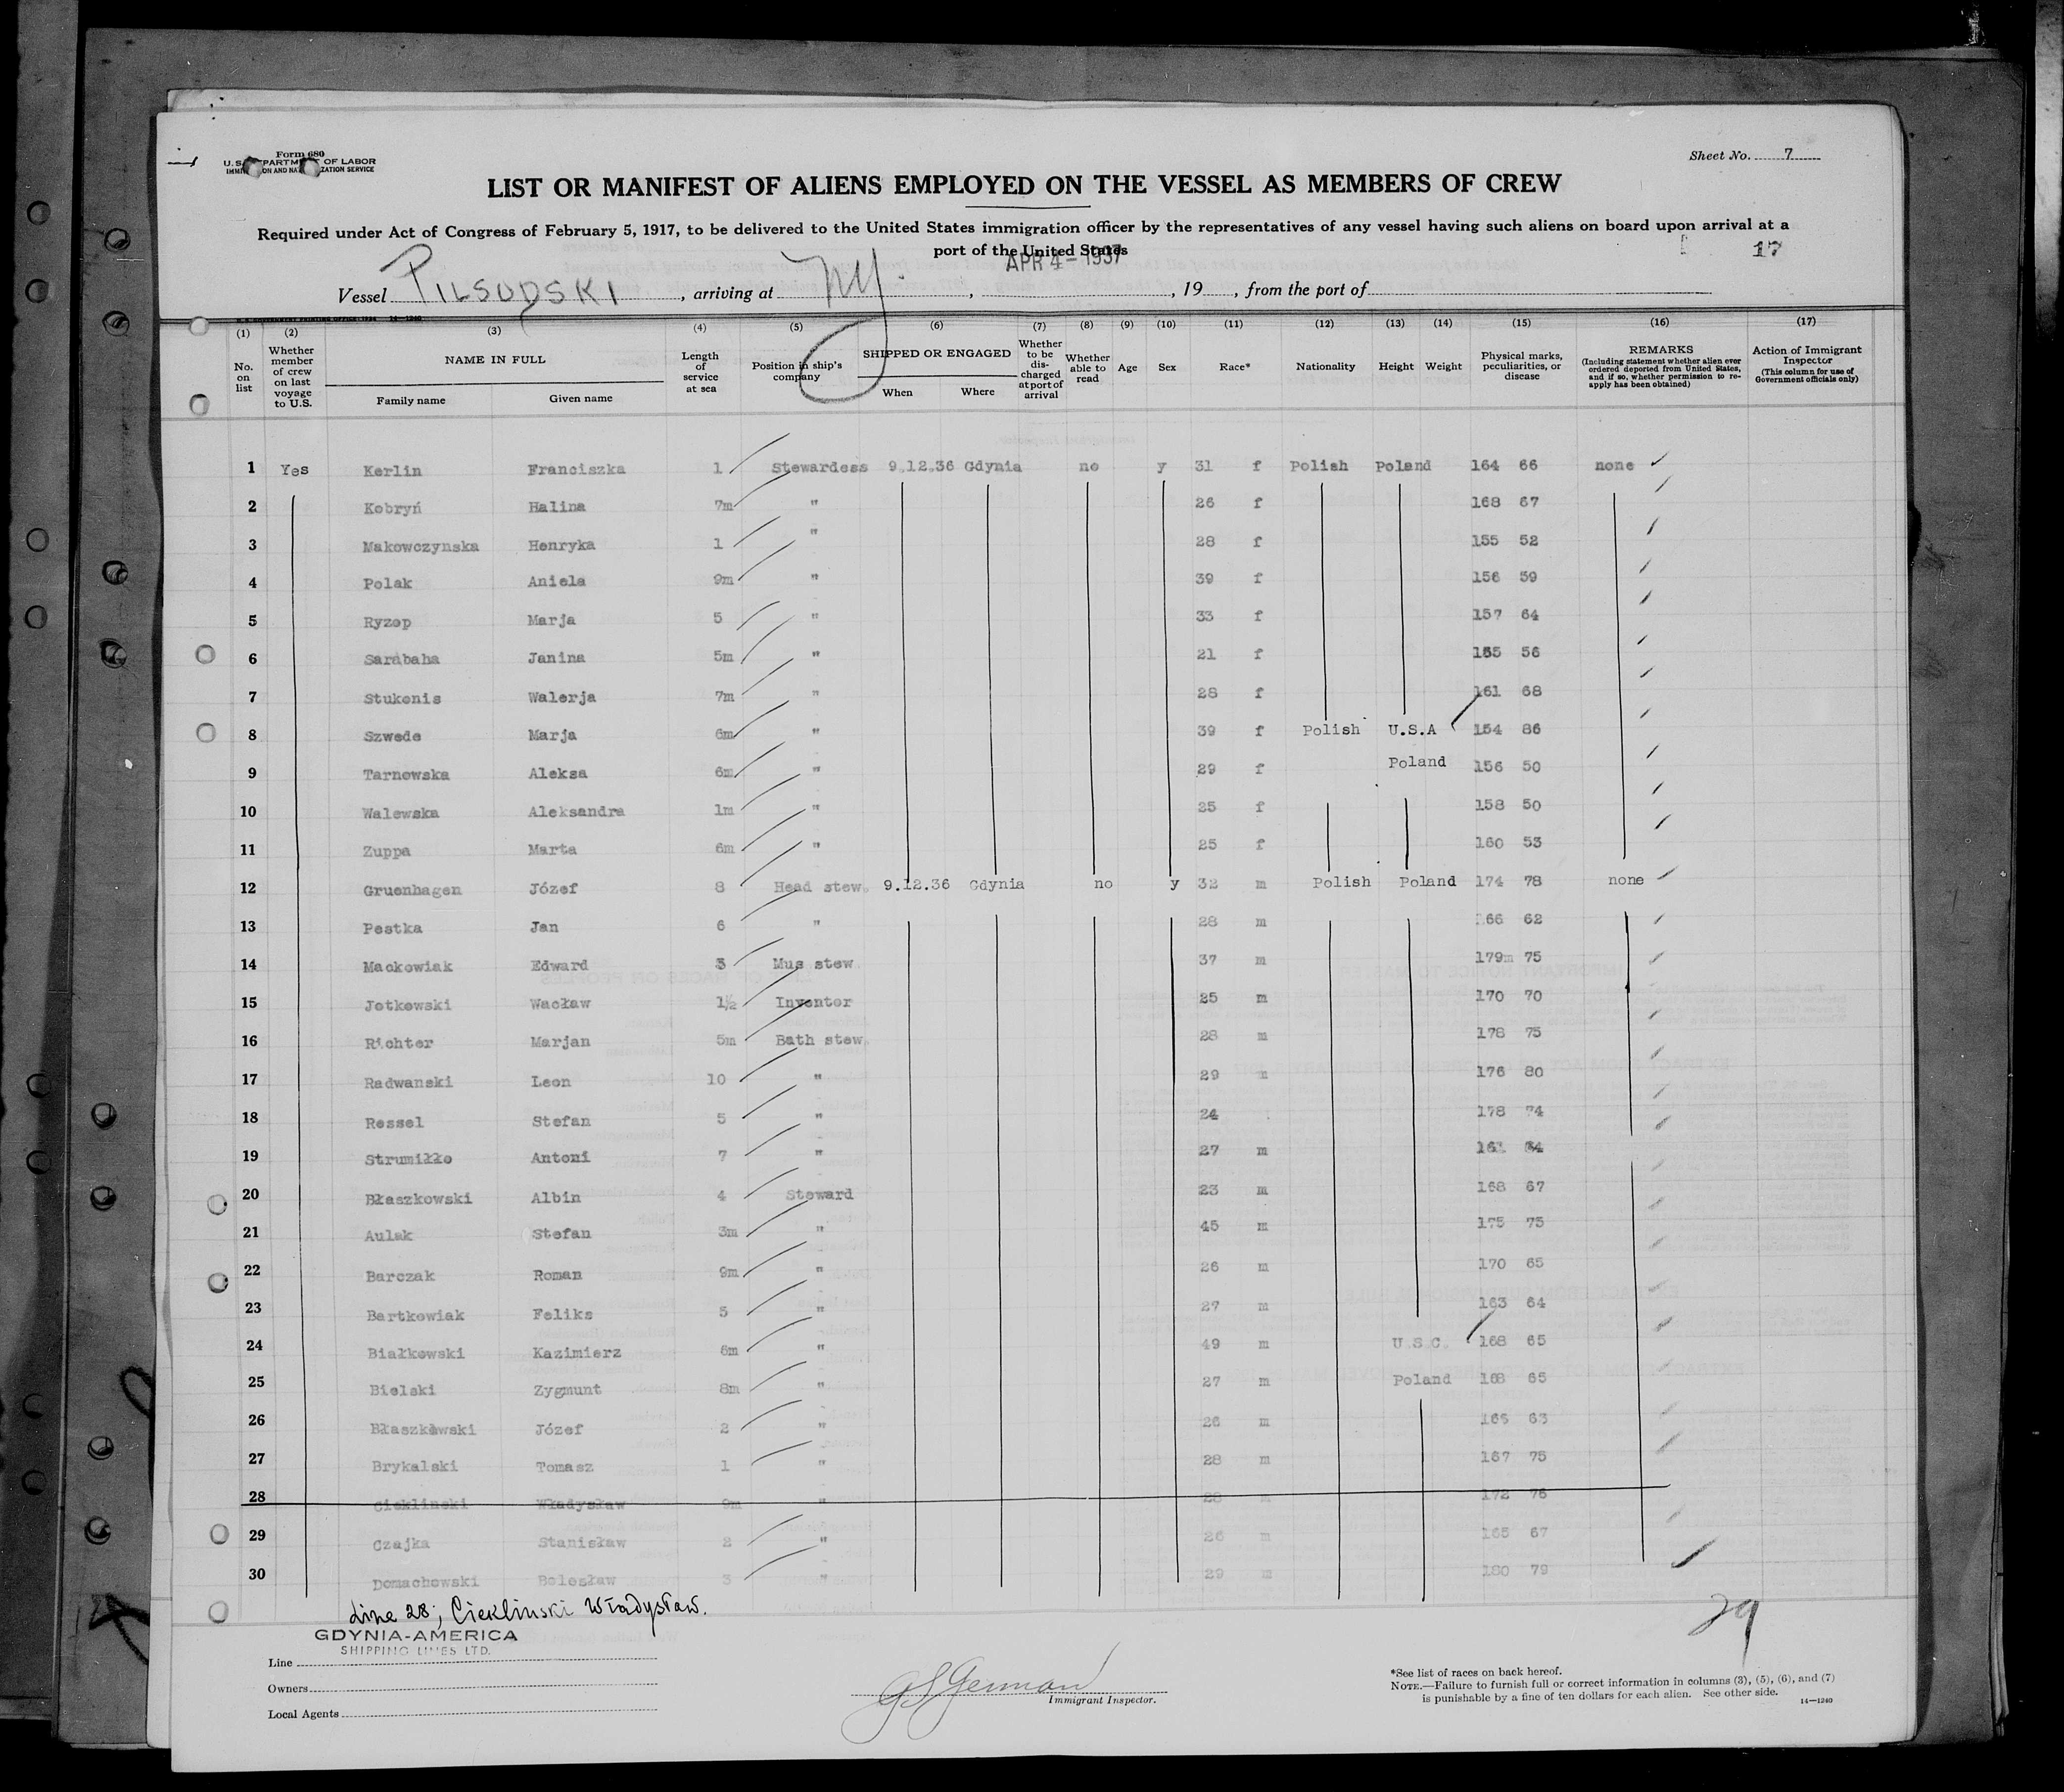 Form 680
U. S. DEPARTMENT OF LABOR
IMMIGRATION AND NATURALIZATION SERVICE
Sheet No. 7
LIST OR MANIFEST OF ALIENS EMPLOYED ON THE VESSEL AS MEMBERS OF CREW
Required under Act of Congress of February 5, 1917, to be delivered to the United States immigration officer by the representatives of any vessel having such aliens on board upon arrival at a
port of the United States
17
APR 4 - 1937
Vessel PILSUDSKI, arriving at NY., , 19 , from the port of
(1) (2) (3) (4) (5) (6) (7) (8) (9) (10) (11) (12) (13) (14) (15) (16) (17)
No. on list Whether member of crew on last voyage to U.S. NAME IN FULL Family name Given name Length of service at sea Position in ship's company SHIPPED OR ENGAGED When Where Whether to be discharged at port of arrival Whether able to read Age Sex Race* Nationality Height Weight Physical marks, peculiarities, or disease REMARKS (Including statement whether alien ever ordered deported from United States, and if so, whether permission to reapply has been obtained) Action of Immigrant Inspector (This column for use of Government officials only)
1 Yes Kerlin Franciszka 1 Stewardess 9.12.36 Gdynia no y 31 f Polish Poland 164 66 none
2 Kobryń Halina 7m " 26 f 168 67
3 Makowczynska Henryka 1 " 28 f 155 52
4 Polak Aniela 9m " 39 f 156 59
5 Ryzop Marja 5 " 33 f 157 64
6 Sarabaha Janina 5m " 21 f 155 56
7 Stukonis Walerja 7m " 28 f 161 68
8 Szwede Marja 6m " 39 f Polish U.S.A 154 86
9 Tarnowska Aleksa 6m " 29 f Poland 156 50
10 Walewska Aleksandra 1m " 25 f 158 50
11 Zuppa Marta 6m " 25 f 160 53
12 Gruenhagen Józef 8 Head stew. 9.12.36 Gdynia no y 32 m Polish Poland 174 78 none
13 Pestka Jan 6 " 28 m 166 62
14 Mackowiak Edward 3 Mus stew 37 m 179m 75
15 Jotkowski Wacław 1½ Inventor 25 m 170 70
16 Richter Marjan 5m Bath stew. 28 m 178 75
17 Radwanski Leon 10 " 29 m 176 80
18 Ressel Stefan 5 " 24 178 74
19 Strumiłło Antoni 7 " 27 m
20 Błaszkowski Albin 4 Steward 23 m 168 67
21 Aulak Stefan 3m " 45 m 175 75
22 Barczak Roman 9m " 26 m 170 65
23 Bartkowiak Feliks 5 " 27 m 163 64
24 Białkowski Kazimierz 8m " 49 m U.S.C. 168 65
25 Bielski Zygmunt 8m " 27 m Poland 168 65
26 Błaszkowski Józef 2 " 26 m 165 63
27 Brykalski Tomasz 1 " 28 m 167 75
28 Cieklinski Władysław 9m " 28 m 172 76
29 Czajka Stanisław 2 " 26 m 165 67
30 Domachowski Bolesław 3 " 29 m 180 79
Line 28; Cieklinski Władysław.
29
GDYNIA-AMERICA
SHIPPING LINES LTD.
Line
Owners
Local Agents
GS German
Immigrant Inspector.
*See list of races on back hereof.
NOTE.—Failure to furnish full or correct information in columns (3), (5), (6), and (7)
is punishable by a fine of ten dollars for each alien. See other side.
14—1240